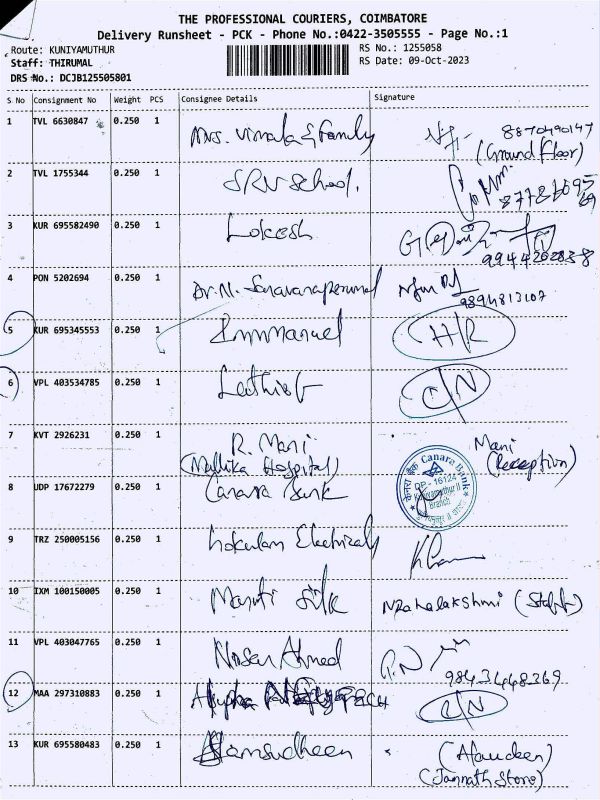 THE PROFESSIONAL COURIERS, COIMBATORE
Delivery Runsheet - PCK - Phone No.:0422-3505555 - Page No.:1
Route: KUNIYAMUTHUR RS No.: 1255058
Staff: THIRUMAL RS Date: 09-Oct-2023
DRS No.: DCJB125505801
S No Consignment No Weight PCS Consignee Details Signature
1 TVL 6630847 0.250 1 Mrs. Vimala & Family 8870490147
(Ground floor)
2 TVL 1755344 0.250 1 SRV School.
3 KUR 695582490 0.250 1 Lokesh
9944202838
4 PON 5202694 0.250 1 Dr. N. Saravanaperumal
9894813107
5 KUR 695345553 0.250 1 Immanuel H/R
6 VPL 403534785 0.250 1 C/N
7 KVT 2926231 0.250 1 R. Mani Mani
(Mallika Hospital) (Reception)
8 UDP 17672279 0.250 1 Canara Bank Canara Bank
DP - 16124
Kuniyamuthur II
Branch
9 TRZ 250005156 0.250 1 Gokulam Electricals
10 IXM 100150005 0.250 1 Maruti Silk (Staff)
11 VPL 403047765 0.250 1 Nisar Ahmed P.N
9843448369
12 MAA 297310883 0.250 1 C/N
13 KUR 695580483 0.250 1 Samsudheen (Alaudeen)
(Jannath Store)